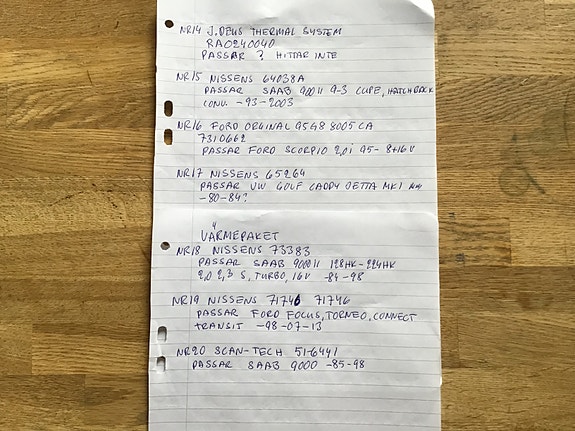 NR14 J. DEUS THERMAL SYSTEM
RA0240040
PASSAR ? HITTAR INTE
NR15 NISSENS 64038A
PASSAR SAAB 900 II 9-3 CUPE, HATCHBACK
CONV. -93-2003
NR16 FORD ORGINAL 95GB 8005 CA
7310662
PASSAR FORD SCORPIO 2,0i 95- 8+16V
NR17 NISSENS 65264
PASSAR VW GOLF CADDY JETTA MK1
-80-84?
VÄRMEPAKET
NR18 NISSENS 73383
PASSAR SAAB 9000 II 128HK-224HK
2,0 2,3 S, TURBO, 16V -84-98
NR19 NISSENS 71746 71746
PASSAR FORD FOCUS, TORNEO, CONNECT
TRANSIT -98-07-13
NR20 SCAN-TECH 51-6441
PASSAR SAAB 9000 -85-98